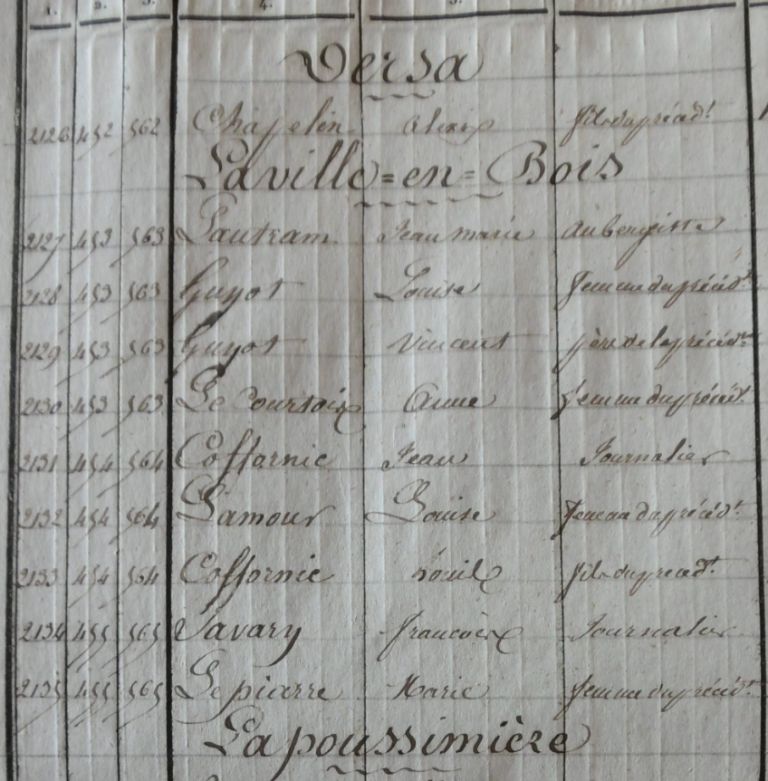 1. 2. 3. 4. 5.
Versa
2126 452 562 Chapelin Alexis fils du précédt
Laville=en=Bois
2127 453 563 Lautram Jean marie aubergiste
2128 453 563 Guyot Louise femme du précédt
2129 453 563 Guyot Vincent père de la précédte
2130 453 563 Le Coursoix Anne femme du précédt
2131 454 564 Coffornic Jean Journalier
2132 454 564 Lamour Louise femme du précédt
2133 454 564 Coffornic fils du précedt
2134 455 565 Savary francois Journalier
2135 455 565 Le piarre Marie femme du précédt
Lapoussimière